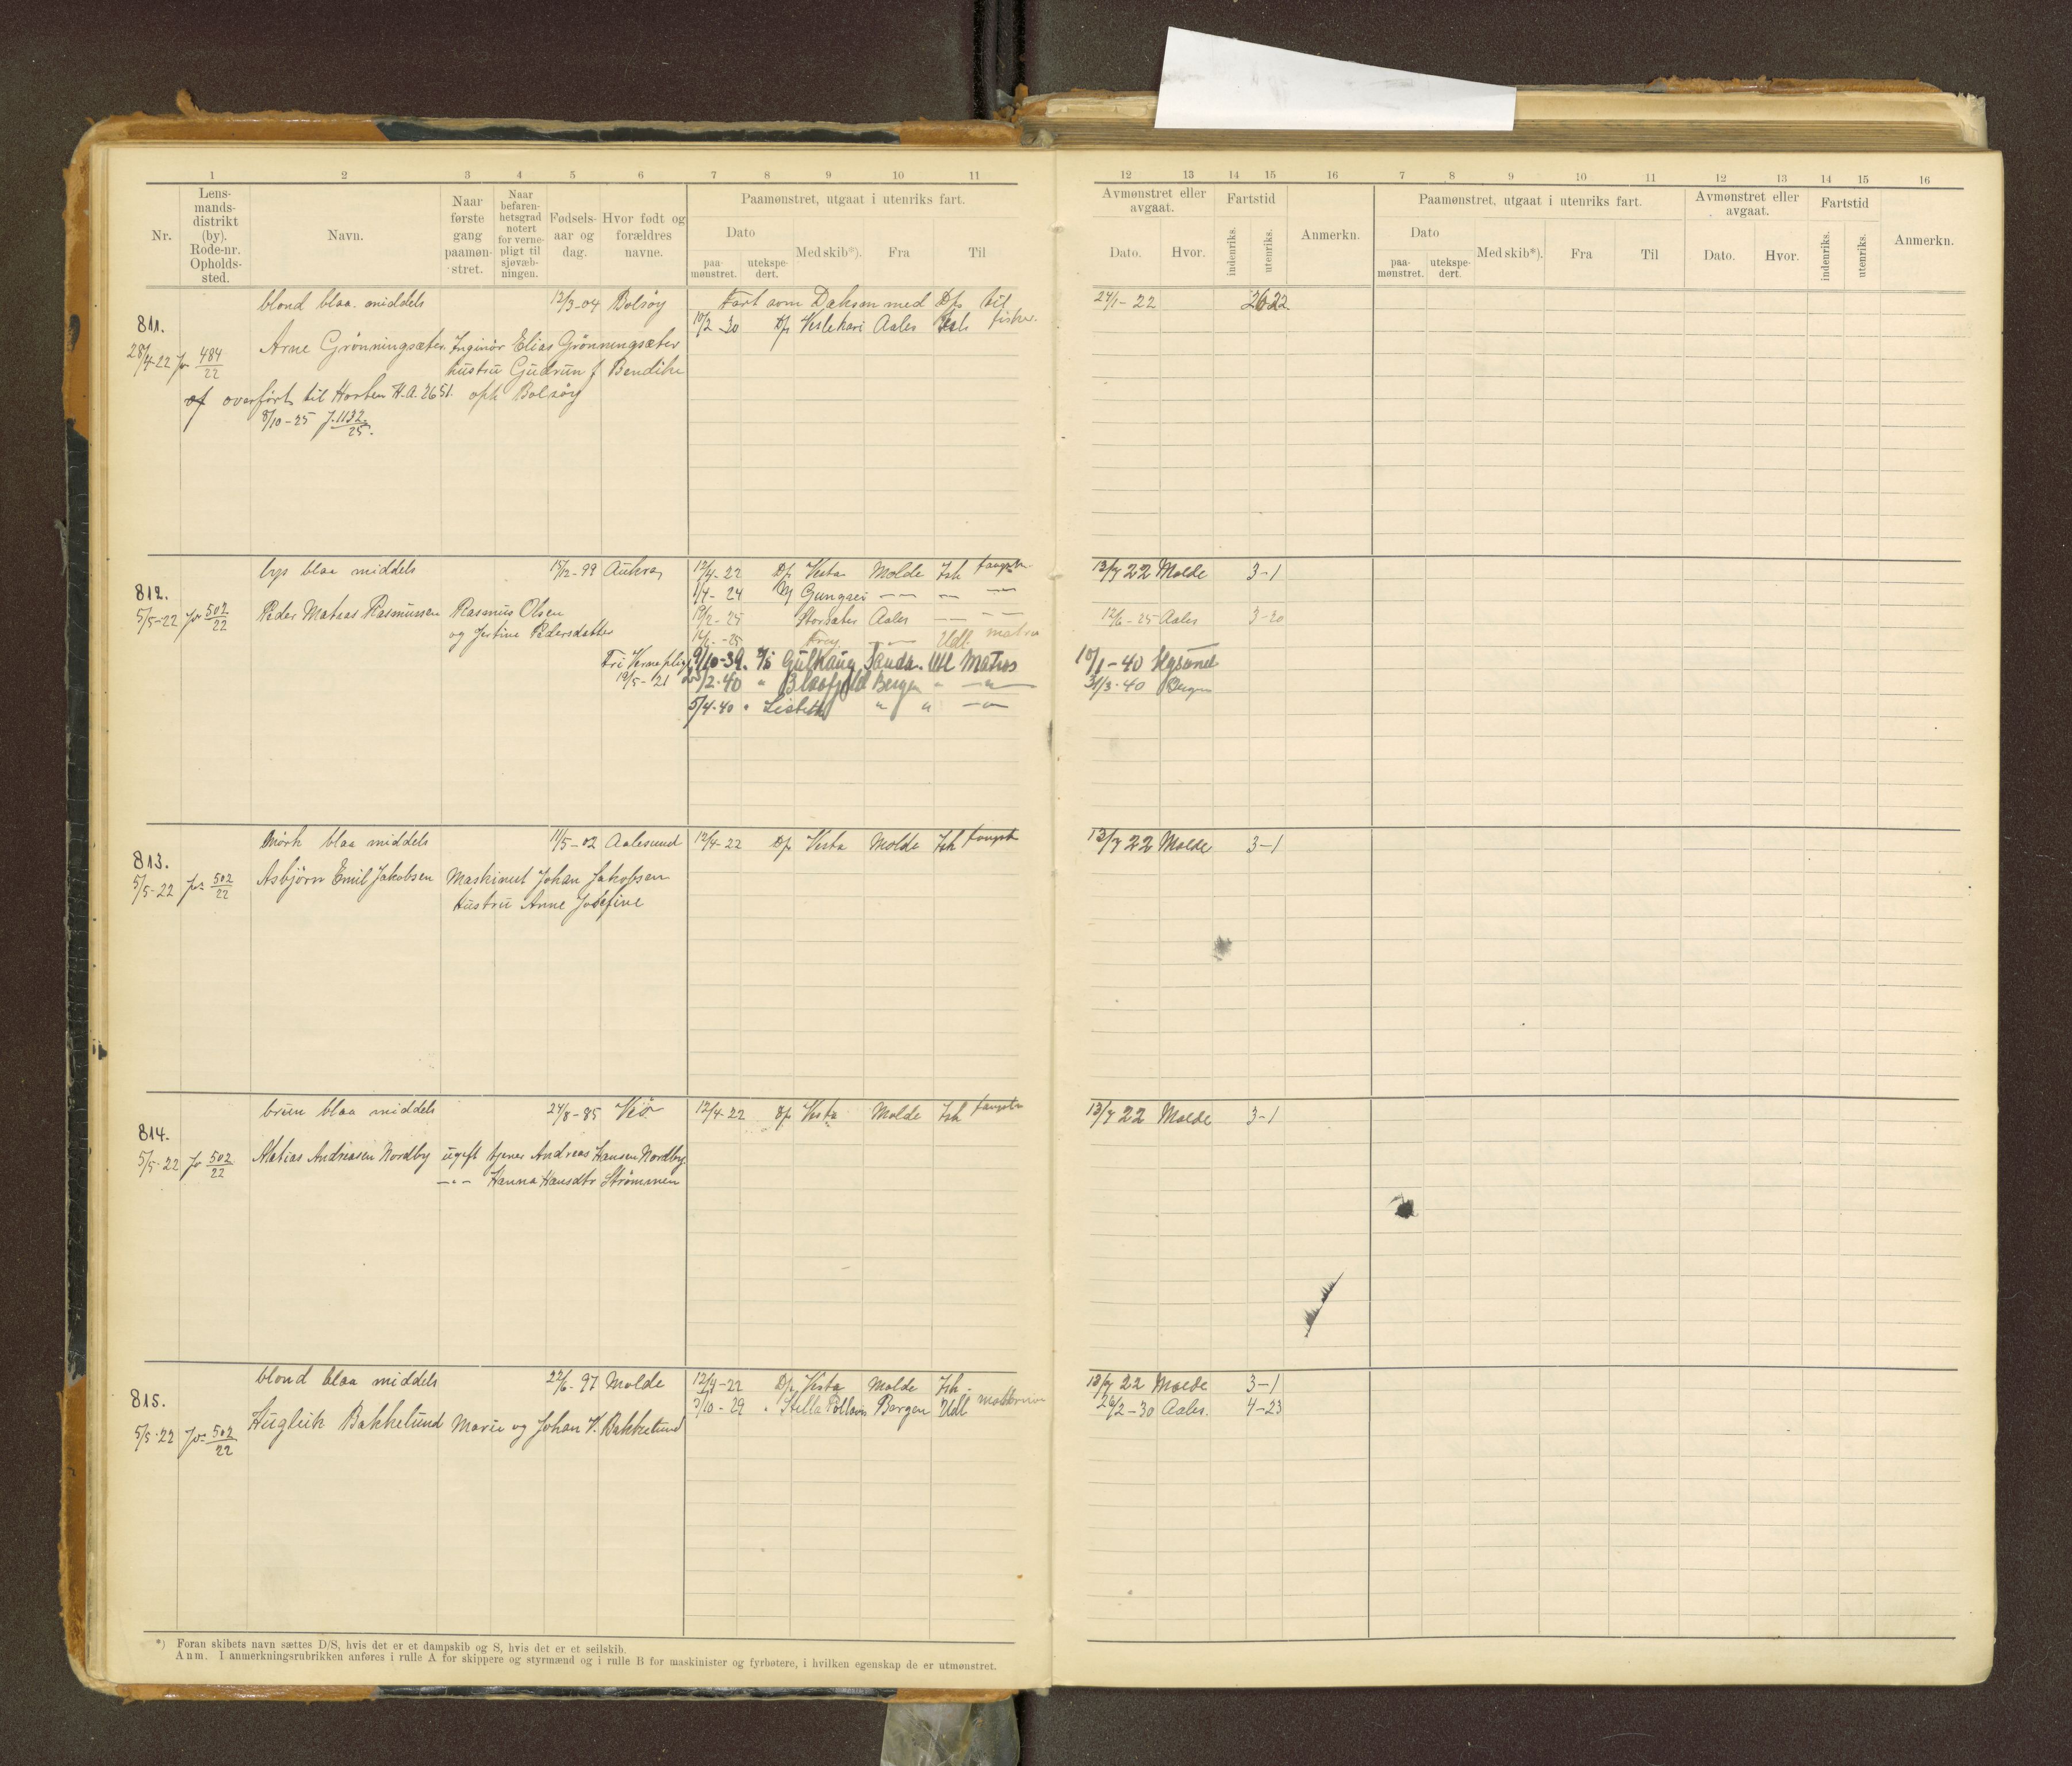 1 2 3 4 5 6 7 8 9 10 11
Nr.
Lens-
mands-
distrikt
(by).
Rode-nr.
Opholds-
sted.
Navn.
Naar
første
gang
paamøn-
stret.
Naar
befaren-
hetsgrad
notert
for verne-
pligt til
sjøvæb-
ningen.
Fødsels-
aar og
dag.
Hvor født og
forældres
navne.
Paamønstret, utgaat i utenriks fart.
Dato
paa-
mønstret.
utekspe-
dert.
Med skib*).
Fra
Til
12 13 14 15 16 7 8 9 10 11 12 13 14 15 16
Avmønstret eller
avgaat.
Dato.
Hvor.
Fartstid
indenriks.
utenriks.
Anmerkn.
Paamønstret, utgaat i utenriks fart.
Dato
paa-
mønstret.
utekspe-
dert.
Med skib*).
Fra
Til
Avmønstret eller
avgaat.
Dato.
Hvor.
Fartstid
indenriks.
utenriks.
Anmerkn.
blond blaa middels 12/3-04 Bolsøy Fart som med D/s til 24/1-22
811.
10/2 30 D/s Veslekari Aales fisker.
28/4-22 Jr 484/22 Arne Grønningsæter Ingeniør Elias Grønningsæter
hustru Gudrun f Bendike
overført til Horten H.A. 2651. oph Bolsøy
8/10-25 J. 1132/25.
lys blaa middels 15/12-99 Aukra 12/4-22 D/s Vesta Molde Ish fangst 13/7 22 Molde 3-1
812.
1/4-24 — — —
5/5-22 Jr 502/22 Peder Matias Rasmussen Rasmus Olsen 19/2-25 Aales — — 12/6-25 Aales 3-20
og Pedersdatter
Frey Udl. matros
Fri Vernepligt 9/10-39. Gulhaug Sauda. Utl Matros 10/1-40
19/5-21 /2-40 " Blaafjeld Bergen " —"— 31/3-40 Bergen
5/4-40 " Lisbeth " " —"—
Mørk blaa middels 11/5-02 Aalesund 12/4-22 D/s Vesta Molde Ish fangst 13/7 22 Molde 3-1
813.
5/5-22 Jr 502/22 Asbjørn Emil Jakobsen Maskinist Johan Jakobsen
Hustru Anne Josefine
brun blaa middels 24/8-85 Veø 12/4-22 D/s Vesta Molde Ish fangst 13/7 22 Molde 3-1
814.
5/5-22 Jr 502/22 Matias Andreasen Nordby ugift tjener Andreas Hansen Nordby
—"— Hanna Hansdtr Strømmen
blond blaa middels 22/6-97 Molde 12/4-22 D/s Vesta Molde Ish. 13/7 22 Molde 3-1
815.
3/10-29 " Stella Polaris Bergen Udl 26/2-30 Aales. 4-23
5/5-22 Jr 502/22 Hugleik Bakkelund Marie og Johan V. Bakkelund
*) Foran skibets navn sættes D/S, hvis det er et dampskib og S, hvis det er et seilskib.
Anm. I anmerkningsrubrikken anføres i rulle A for skippere og styrmænd og i rulle B for maskinister og fyrbøtere, i hvilken egenskap de er utmønstret.